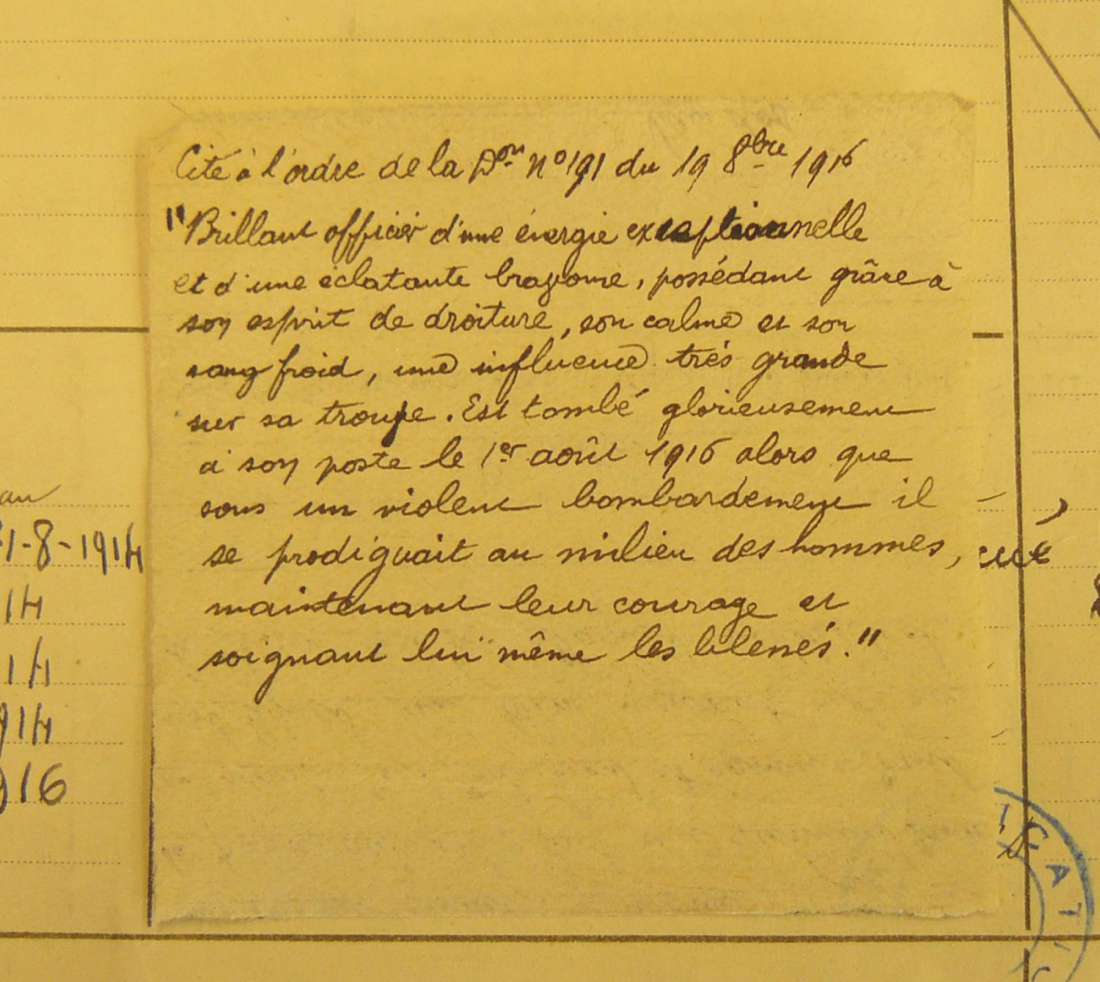 Cité à l'ordre de la Don n° 191 du 19 8bre 1916
"Brillant officier d'une énergie exceptionnelle
et d'une éclatante bravoure, possédant grâce à
son esprit de droiture, son calme et son
sang froid, une influence très grande
sur sa troupe. Est tombé glorieusement
à son poste le 1er août 1916 alors que
sous un violent bombardement il
se prodiguait au milieu des hommes,
maintenant leur courage et
soignant lui même les blessés."
1-8-1914
14
14
914
916